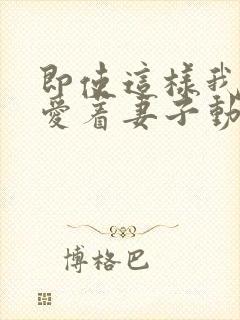 即使這樣我
愛着妻子動
博格巴